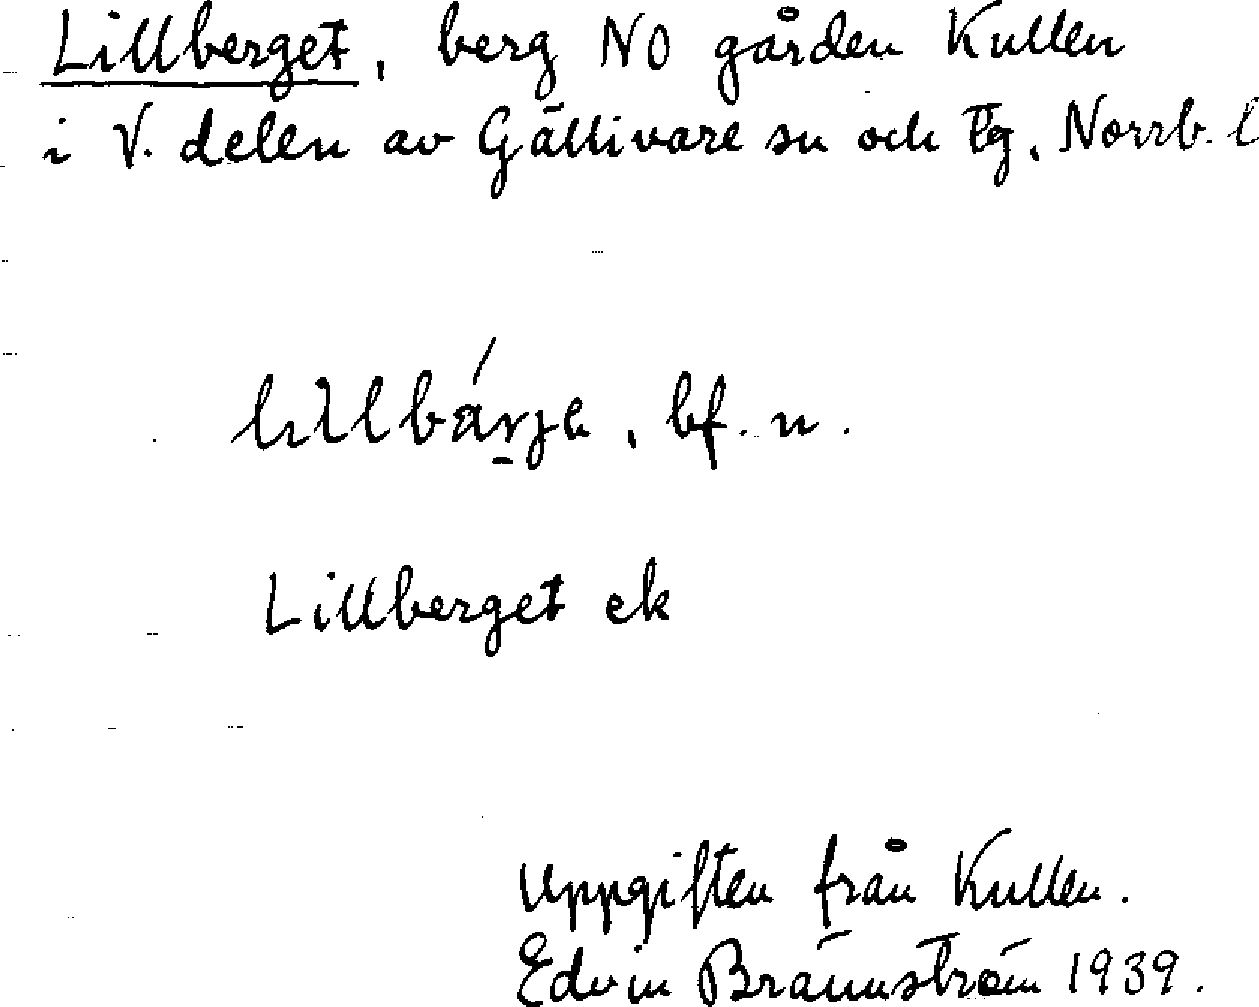 Lillberget, berg NO gården Kullen
i V. delen av Gällivare sn och tg, Norrb. l
lillbärje, bf. n.
Lillberget ek
Uppgiften från Kullen.
Edvin Brännström 1939.